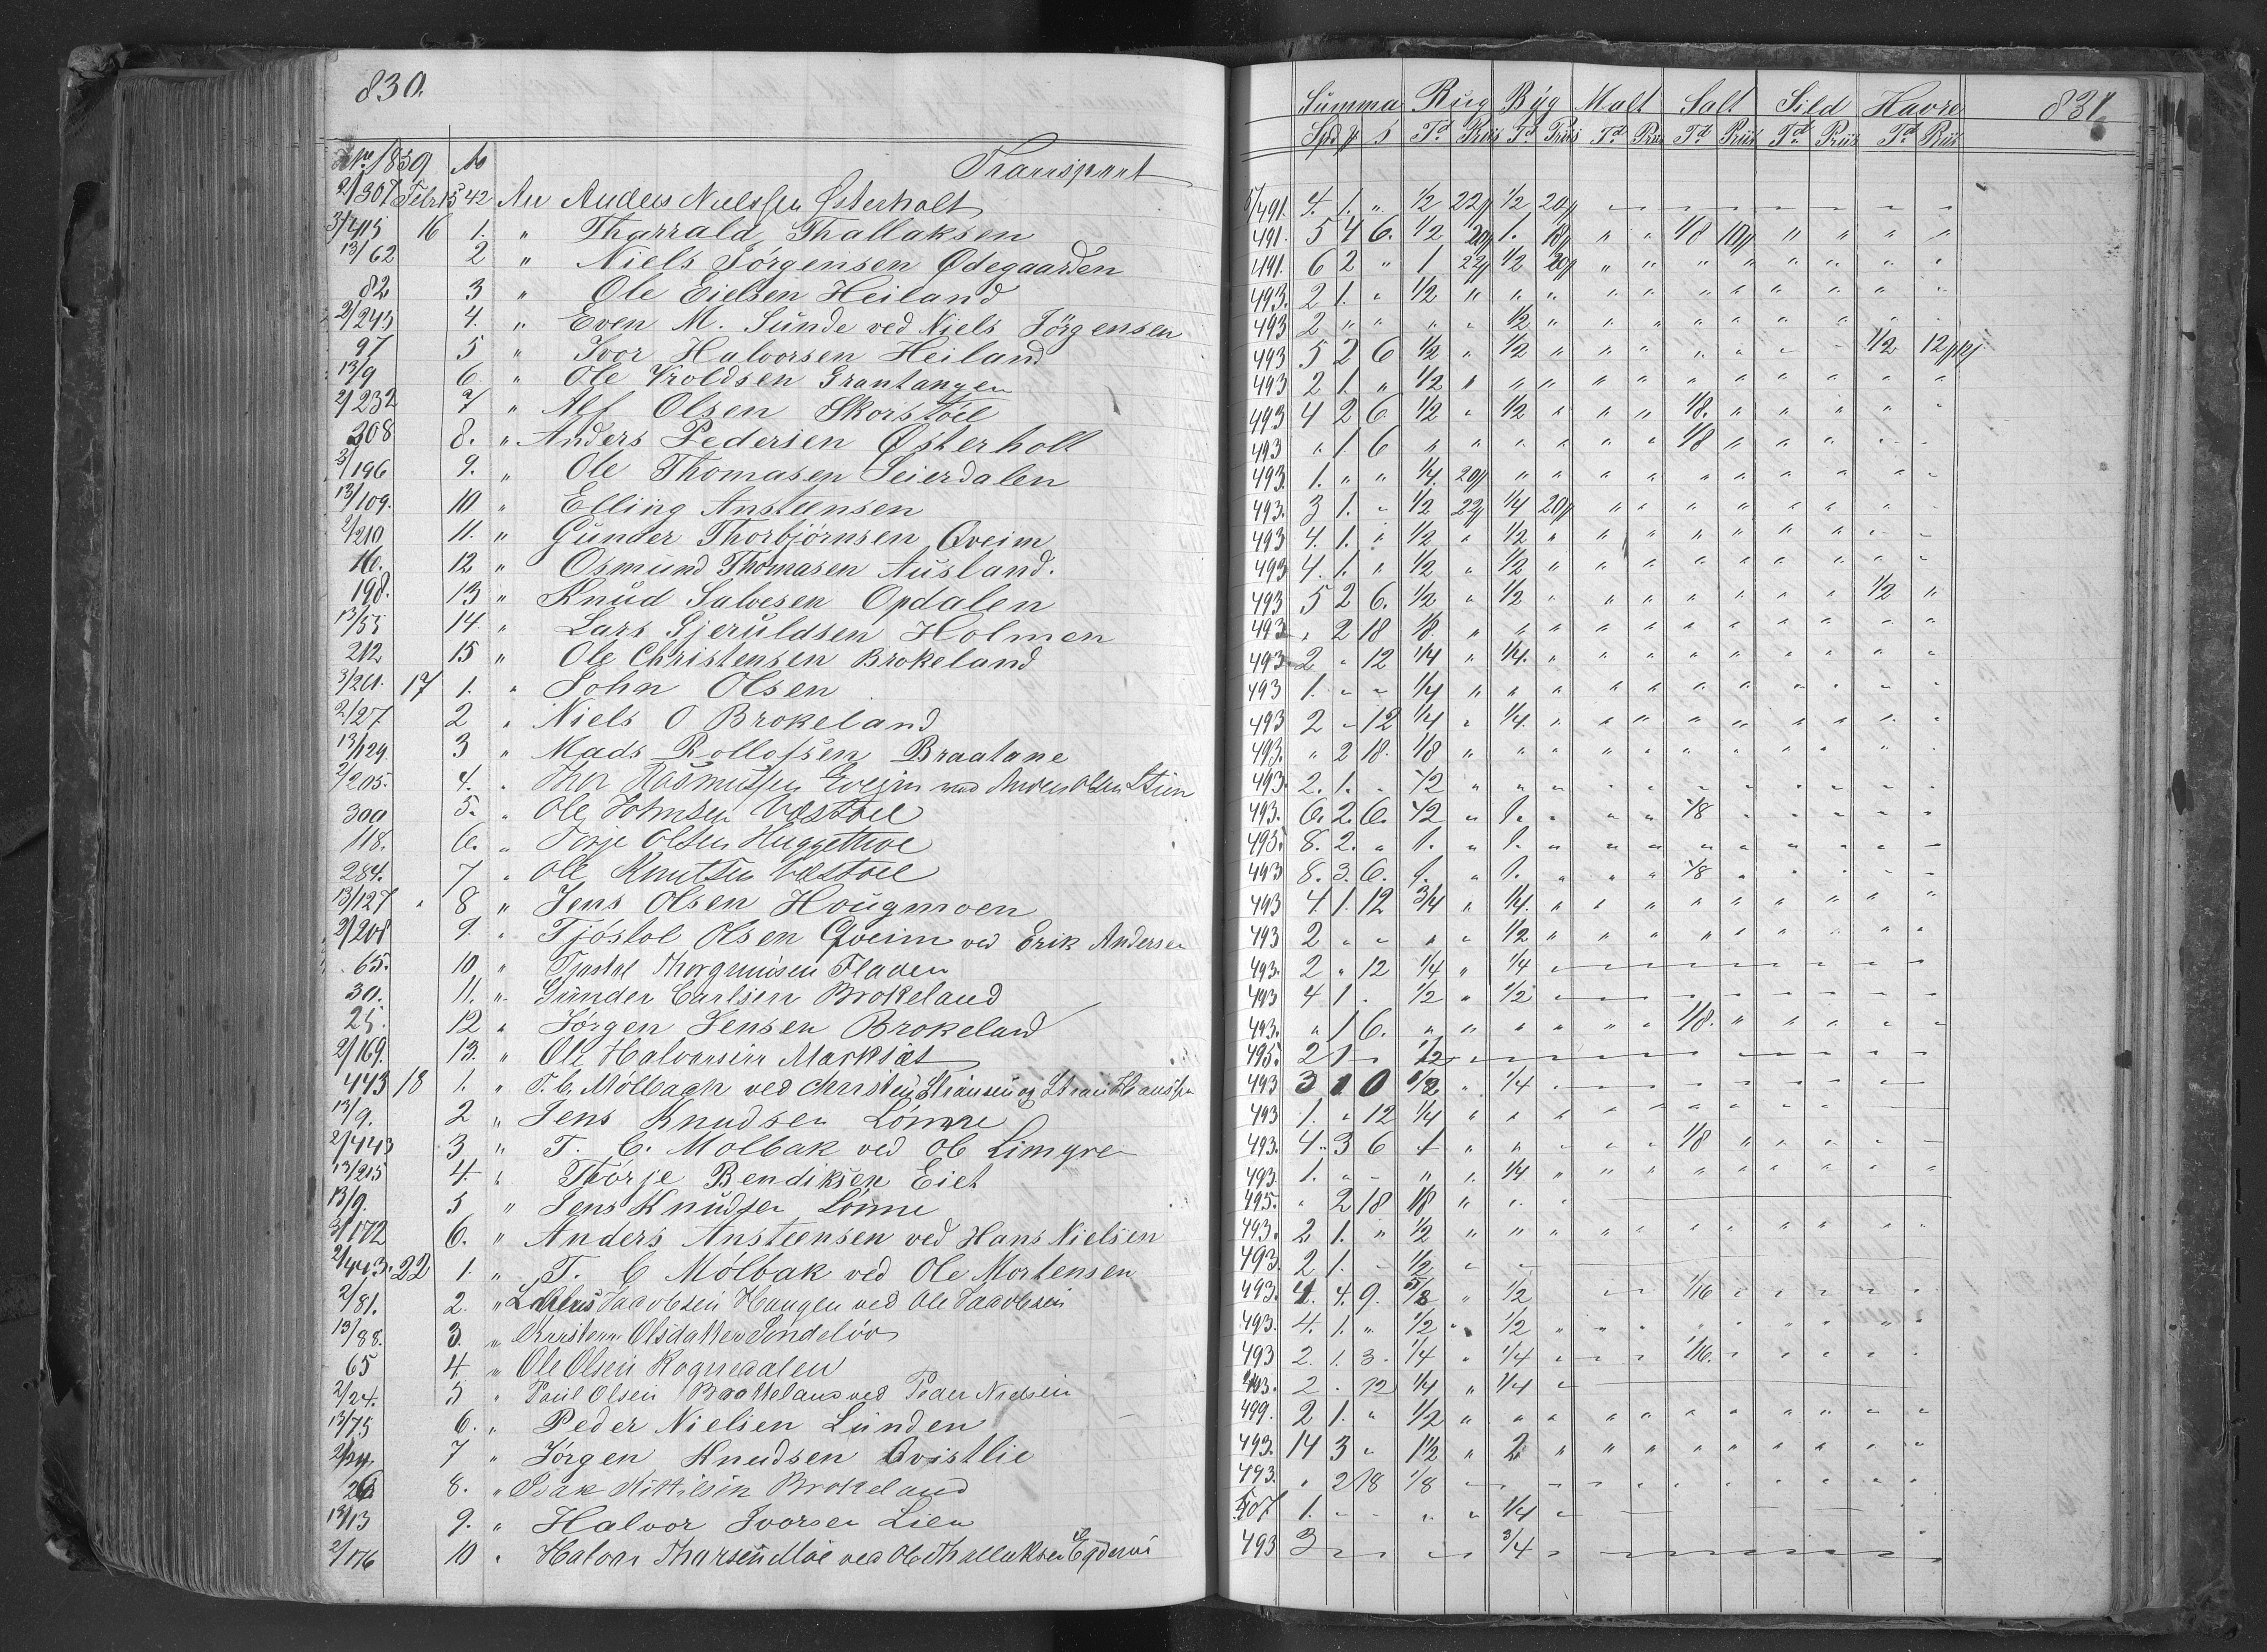 830.
831.
Summa Rug Byg Malt Salt Sild Havre
Spd # s Td Priis Td Priis Td Priis Td Priis Td Priis Td Priis
1859 No Transport
2/307 Febr 15 42 An Anders Nielssen Østerholt 491. 4. 1. " 1/2 22 1/2 20
3/415 16 1. " Tharrald Thallaksen 491. 5 4 6. 1/2 20 1. 18 " " 1/8 10 " " " "
13/62 2 " Niels Jörgensen Ødegaarden 491. 6 2 " 1 22 1/2 20 " " " " " " " "
82 3 " Ole Eielsen Heiland 493. 2 1. " 1/2 " " " " " " " " " " "
2/243 4. " Even M. Sunde ved Niels Jörgensen 493 2 " " " " 1/2 " " " " " " " " "
97 5 " Ivor Halvorsen Heiland 493 5 2 6 1/2 " 1/2 " " " " " " " 1/2 12
13/9 6. " Ole Vroldsen Grantangen 493 2 1. " 1/2 " " " " " " " " " " "
2/232 7 " Alf Olsen Skorstöl 493 4 2 6 1/2 " 1/2 " " " 1/8. " " " " "
308 8. " Anders Pedersen Østerholt 493 " 1 6 " " " " " " 1/8 " " " " "
2/196 9. " Ole Thomasen Seierdalen 493. 1. " " 1/4. 20 " " " " " " " " " "
13/109. 10 " Elling Ansteensen 493. 3 1. " 1/2 22 1/4 20 " " " " " " " "
2/210 11. " Gunder Thorbjörnsen Qveim 493 4. 1. " 1/2 " 1/2 " " " " " " " " "
16. 12 " Osmund Thomasen Ausland. 493 4. 1. " 1/2 " 1/2 " " " " " " " " "
198. 13 " Knud Salvesen Opdalen 493 5 2 6. 1/2 " 1/2 " " " " " " " 1/2 "
13/55 14. " Lars Gjeruldsen Holmen 493 " 2 18 1/8. " " " " " " " " " " "
212 15 " Ole Christensen Brokeland 493 2 " 12 1/4 " 1/4. " " " " " " " " "
3/261. 17 1. " John Olsen 493 1. " " 1/4 " " " " " " " " " " "
2/27. 2 " Niels O Brokeland 493 2 " 12 1/4 " 1/4. " " " " " " " " "
13/129. 3 " Mads Rollofsen Braatane 493. " 2 18. 1/8 " " " " " " " " " " "
2/205. 4. " Thor Rasmussen Qvejm ved Anders Olsen Stien 493. 2. 1. " 1/2 " " " " " " " " " " "
300 5. " Ole Johnsen Væstöel 493. 6. 2. 6. 1/2 " 1. " " " 1/8 " " " " "
118. 6. " Tarje Olsen 495. 8. 2. " 1. " 1. " " " " " " " " "
284. 7 " Ole Knutsen Væstöel 493 8. 3. 6. 1. " 1. " " " 1/8 " " " " "
13/127 8 " Jens Olsen Hougmoen 493 4. 1. 12 3/4 " 1/4. " " " " " " " " "
2/208 9. " Tjöstol Olsen Qveim ved Erik Andersen 493 2 " " " " 1/2 " " " " " " " " "
65. 10 " Tjostol Fladen 493. 2 " 12 1/4 " 1/4
30. 11. " Gunder Carlsen Brokeland 493 4 1 " 1/2 " 1/2
25. 12 " Jörgen Jensen Brokeland 493. " 1 6. " " " " " " 1/8. " " " " "
2/169. 13. " Ole Halvorsen Marksæt 495. 2 1 1/2
443 18 1. " T. C. Mölbach ved Christen 493 3 1 0 1/2 " 1/4
13/9. 2 " Jens Knudsen Lönne 493 1. " 12 1/4 " " " " " " " " " " "
2/443 3 " T. C. Mölbak ved Ole Limgre 493. 4. 3 6 1 " " " " " 1/8 " " " "
13/215 4. " Thörje Bendiksen Eiet 493. 1. " " " " 1/4 " " " " " " " " "
13/9. 5 " Jens Knudsen Lönne 495. " 2 18 1/8 " " "
3/172 6. " Anders Ansteensen ved Hans Nielsen 493. 2 1. " 1/2 " " " " " " " " " " "
2/443. 22 1. " T. C Mölbak ved Ole Mortensen 493. 2 1. " 1/2 " "
2/81. 2. " Jacobsen Haugen ved Ole Jacobsen 493. 4. 4. 9. 5/8 " 1/2 1/16
13/88. 3. " Olsdatter Söndelöv 493. 4. 1. " 1/2 " 1/2 " " " " " " " " "
65 4 " Ole Olsen Rognedalen 493 2. 1. 3. 1/4 " 1/4 " " " 1/16. " " " " "
2/24. 5 " Paul Olsen Brokeland ved Peder Nielsen 493. 2 . 12 1/4 " 1/4
13/75 6. " Peder Nielsen Lunden 499. 2 1. " 1/2 " " " " " " " " " " "
7 " Jörgen Knudsen Qvistlie 493. 14 3 " 1 1/2 " 2 " " " " " " " " "
26 8. " Isak Kittilsen Brokeland 493. " 2 18 1/8
13/13 9. " Halvor Ivorsen Lien 507 1. " " " " 1/4
2/176 10 " Halvor Tharsen Moe ved Ole Thallaksen 493 3 3/4